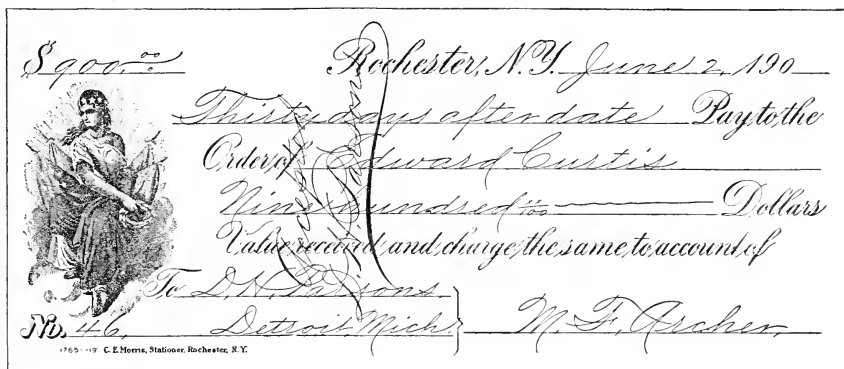 $900.00 Rochester, N.Y. June 2, 190
Thirty days after date Pay to the
Order of Edward Curtis
Nine hundred 00/100 Dollars
Value received and charge the same to account of
To D. H. Parsons
No. 46, Detroit, Mich. M. F. Archer
C. E. Morris, Stationer, Rochester, N.Y.
Accepted
Parsons